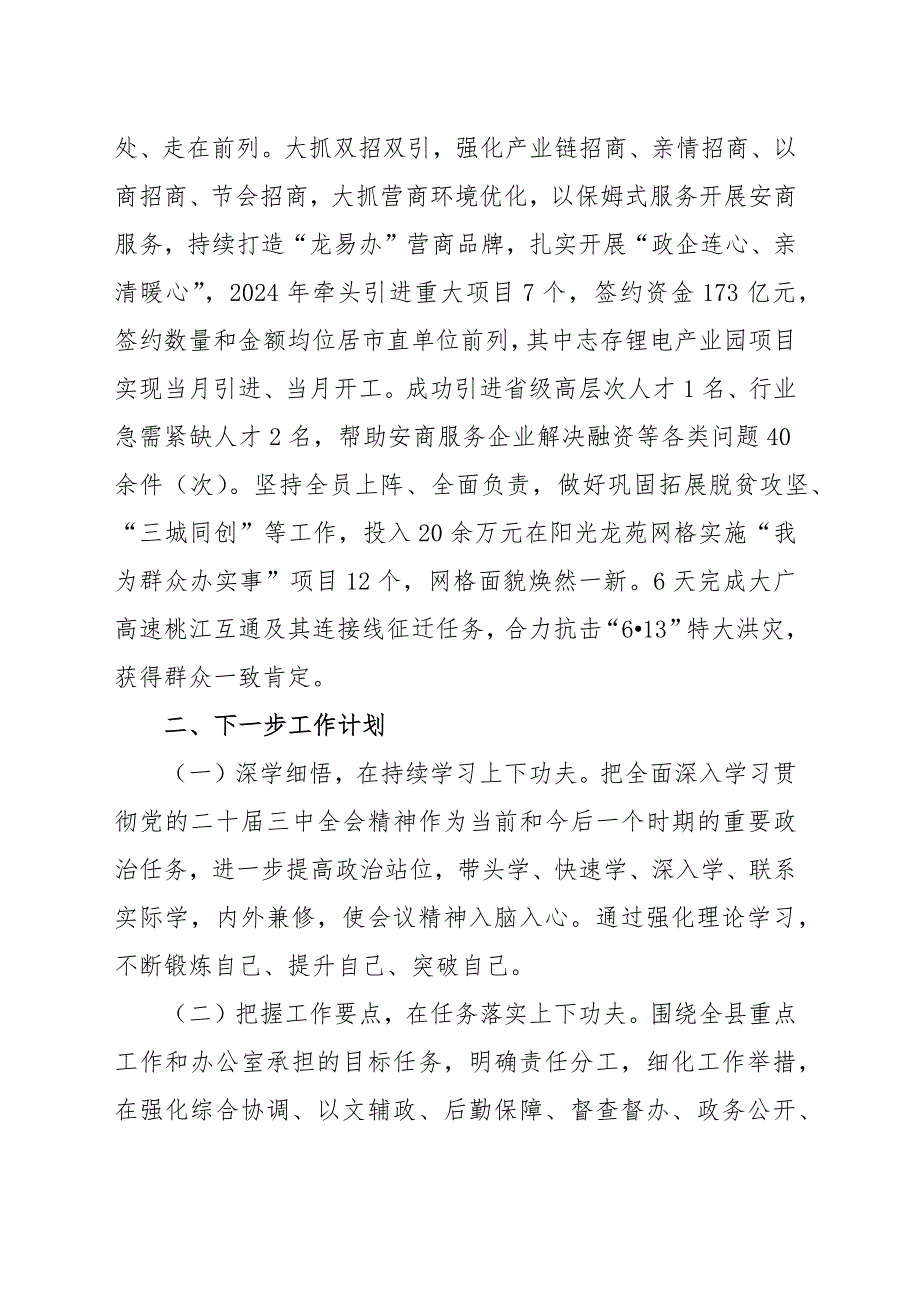 处、走在前列。大抓双招双引，强化产业链招商、亲情招商、以
商招商、节会招商，大抓营商环境优化，以保姆式服务开展安商
服务，持续打造“龙易办”营商品牌，扎实开展“政企连心、亲
清暖心”，2024 年牵头引进重大项目 7 个，签约资金 173 亿元，
签约数量和金额均位居市直单位前列，其中志存锂电产业园项目
实现当月引进、当月开工。成功引进省级高层次人才 1 名、行业
急需紧缺人才 2 名，帮助安商服务企业解决融资等各类问题 40
余件（次）。坚持全员上阵、全面负责，做好巩固拓展脱贫攻坚、
“三城同创”等工作，投入 20 余万元在阳光龙苑网格实施“我
为群众办实事”项目 12 个，网格面貌焕然一新。6 天完成大广
高速桃江互通及其连接线征迁任务，合力抗击“6•13”特大洪灾，
获得群众一致肯定。
二、下一步工作计划
（一）深学细悟，在持续学习上下功夫。把全面深入学习贯
彻党的二十届三中全会精神作为当前和今后一个时期的重要政
治任务，进一步提高政治站位，带头学、快速学、深入学、联系
实际学，内外兼修，使会议精神入脑入心。通过强化理论学习，
不断锻炼自己、提升自己、突破自己。
（二）把握工作要点，在任务落实上下功夫。围绕全县重点
工作和办公室承担的目标任务，明确责任分工，细化工作举措，
在强化综合协调、以文辅政、后勤保障、督查督办、政务公开、